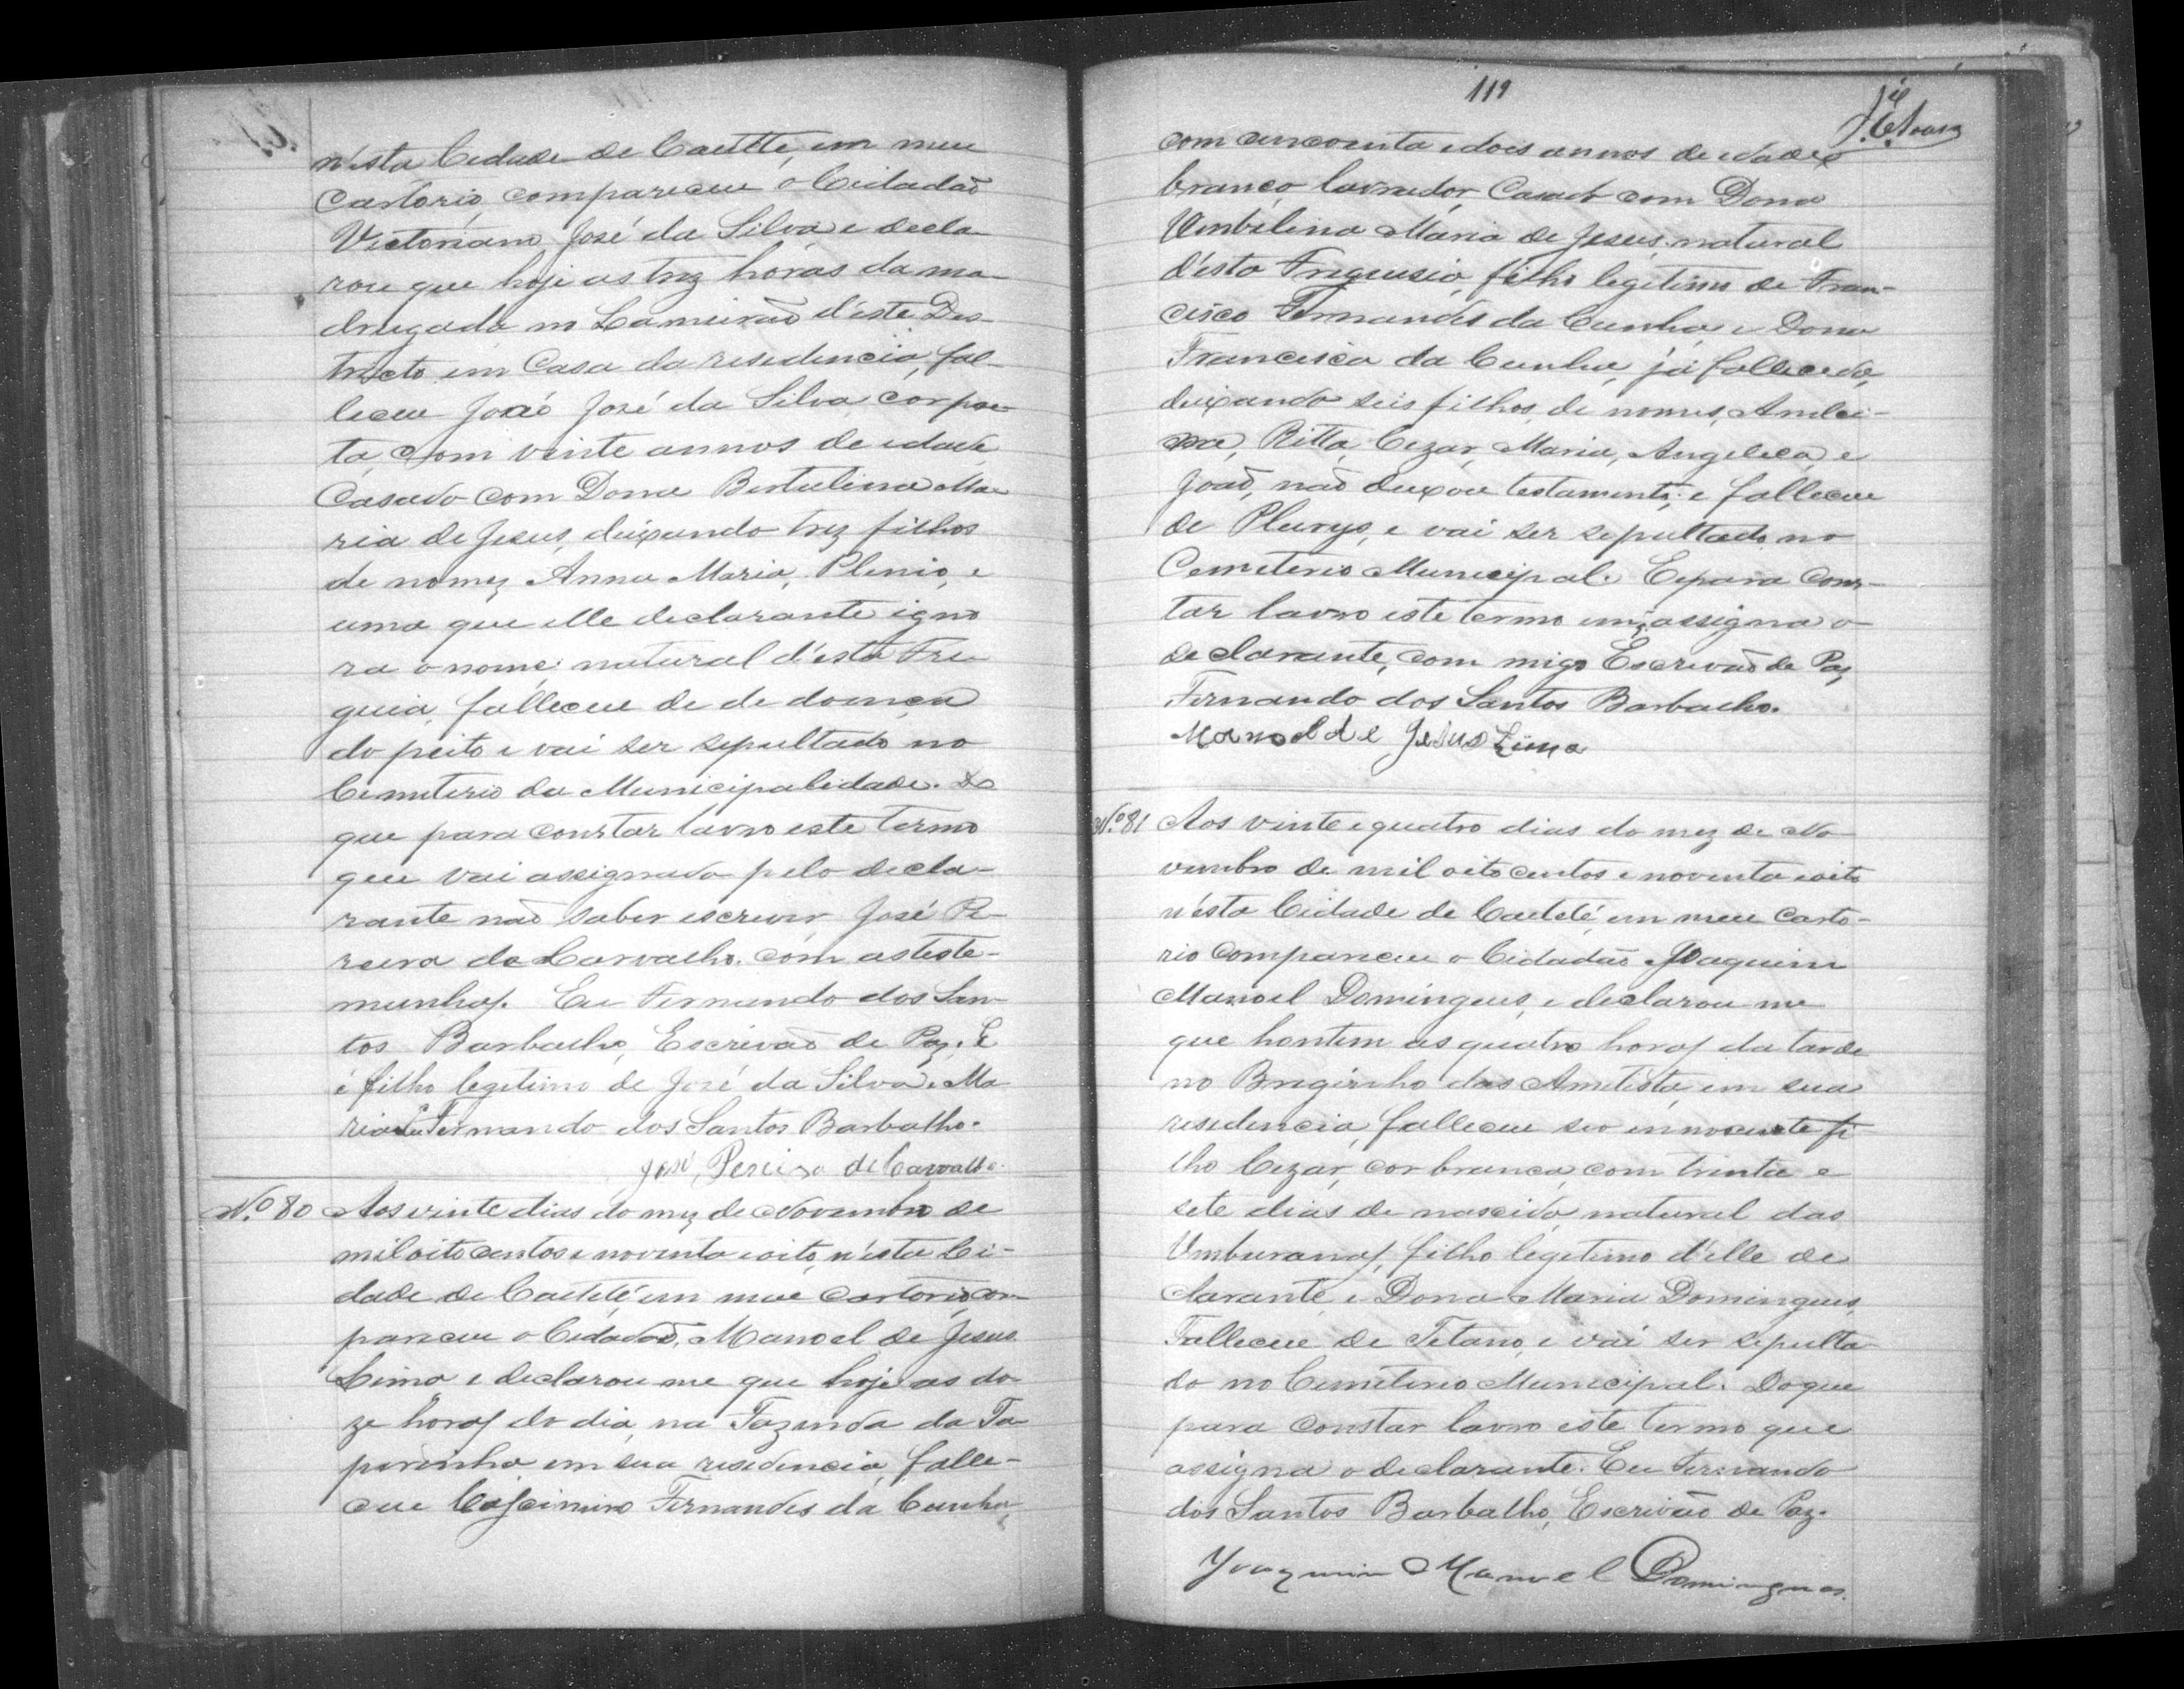 n'esta Cidade de Caetité, em meu
Cartorio, compareceu o Cidadão
Victoriano José da Silva e decla-
rou que hoje as trez horas da ma-
drugada no Lameirão d'este Des-
tricto em Casa da residencia, fal-
leceu José da Silva, côr pre-
ta, com vinte annos de edade,
Casado com Dona Bertulina Ma-
ria de Jesus, deixando trez filhos
de nomez Anna Maria, Plinio, e
uma que elle declarante igno
ra o nome; natural d'esta Fre
guia, falleceu de de doença
do peito e vai ser sepultado no
Cemiterio da Municipalidade. Do
que para constar lavro este termo
que vai assignado pelo decla-
rante não saber escrever José Pe-
reira de Carvalho. com as teste-
munhas. Eu Fernando dos San-
tos Barbalho, Escrivão de Paz. E
é filho legitimo de José da Silva e Ma
ria Eu Fernando dos Santos Barbalho.
José, Pereira de Carvalho.
N.º 80 Aos vinte dias do mez de Novembro de
mil oito centos e noventa e oito, n'esta Ci-
dade de Caetité, em meu Cartorio, com-
pareceu o Cidadão, Manoel de Jesus
Lima e declarou me que hoje as do-
ze horas do dia, na Fazenda da Ta-
perinha em sua residencia, falle-
ceu Cascimiro Fernandes da Cunha,
119
com cincoenta e dois annos de edade,
branco, lavrador, Casado com Dona
Umbilina Maria de Jesus, natural
d'esta Freguesia, filho legitimo de Fran-
cisco Fernandes da Cunha e Dona
Francisca da Cunha, já fallecida,
deixando seis filhos, de nomes,
Ritta, Cezar, Maria, Angelica, e
João, não deixou testamento; e falleceu
de Pleuryz, e vai ser sepultado no
Cemiterio Municipal. E para Cons-
tar lavro este termo em q assigna o
declarante, com migo Escrivão de Paz
Fernando dos Santos Barbalho.
Manoel de Jesus Lima
N.º 81 Aos vinte e quatro dias do mez de No
vembro de mil oito centos e noventa e oito
n'esta Cidade de Caetité, em meu Carto-
rio Compareceu o Cidadão Joaquim
Manoel Domingues, e declarou me
que hontem as quatro horas da tarde
no Breginho das Ametista, em sua
residencia, falleceu seo innocente fi
lho Cezar, cor branca, com trinta e
sete dias de nascido, natural das
Umburanas, filho legitimo d'elle de
clarante e Dona Maria Domingues,
Falleceu de Tetano, e vai ser sepulta-
do no Cemiterio Municipal. Do que
para constar lavro este termo que
assigna o declarante. Eu Fernando
dos Santos Barbalho, Escrivão de Paz.
Joaquim Manuel Domingues.